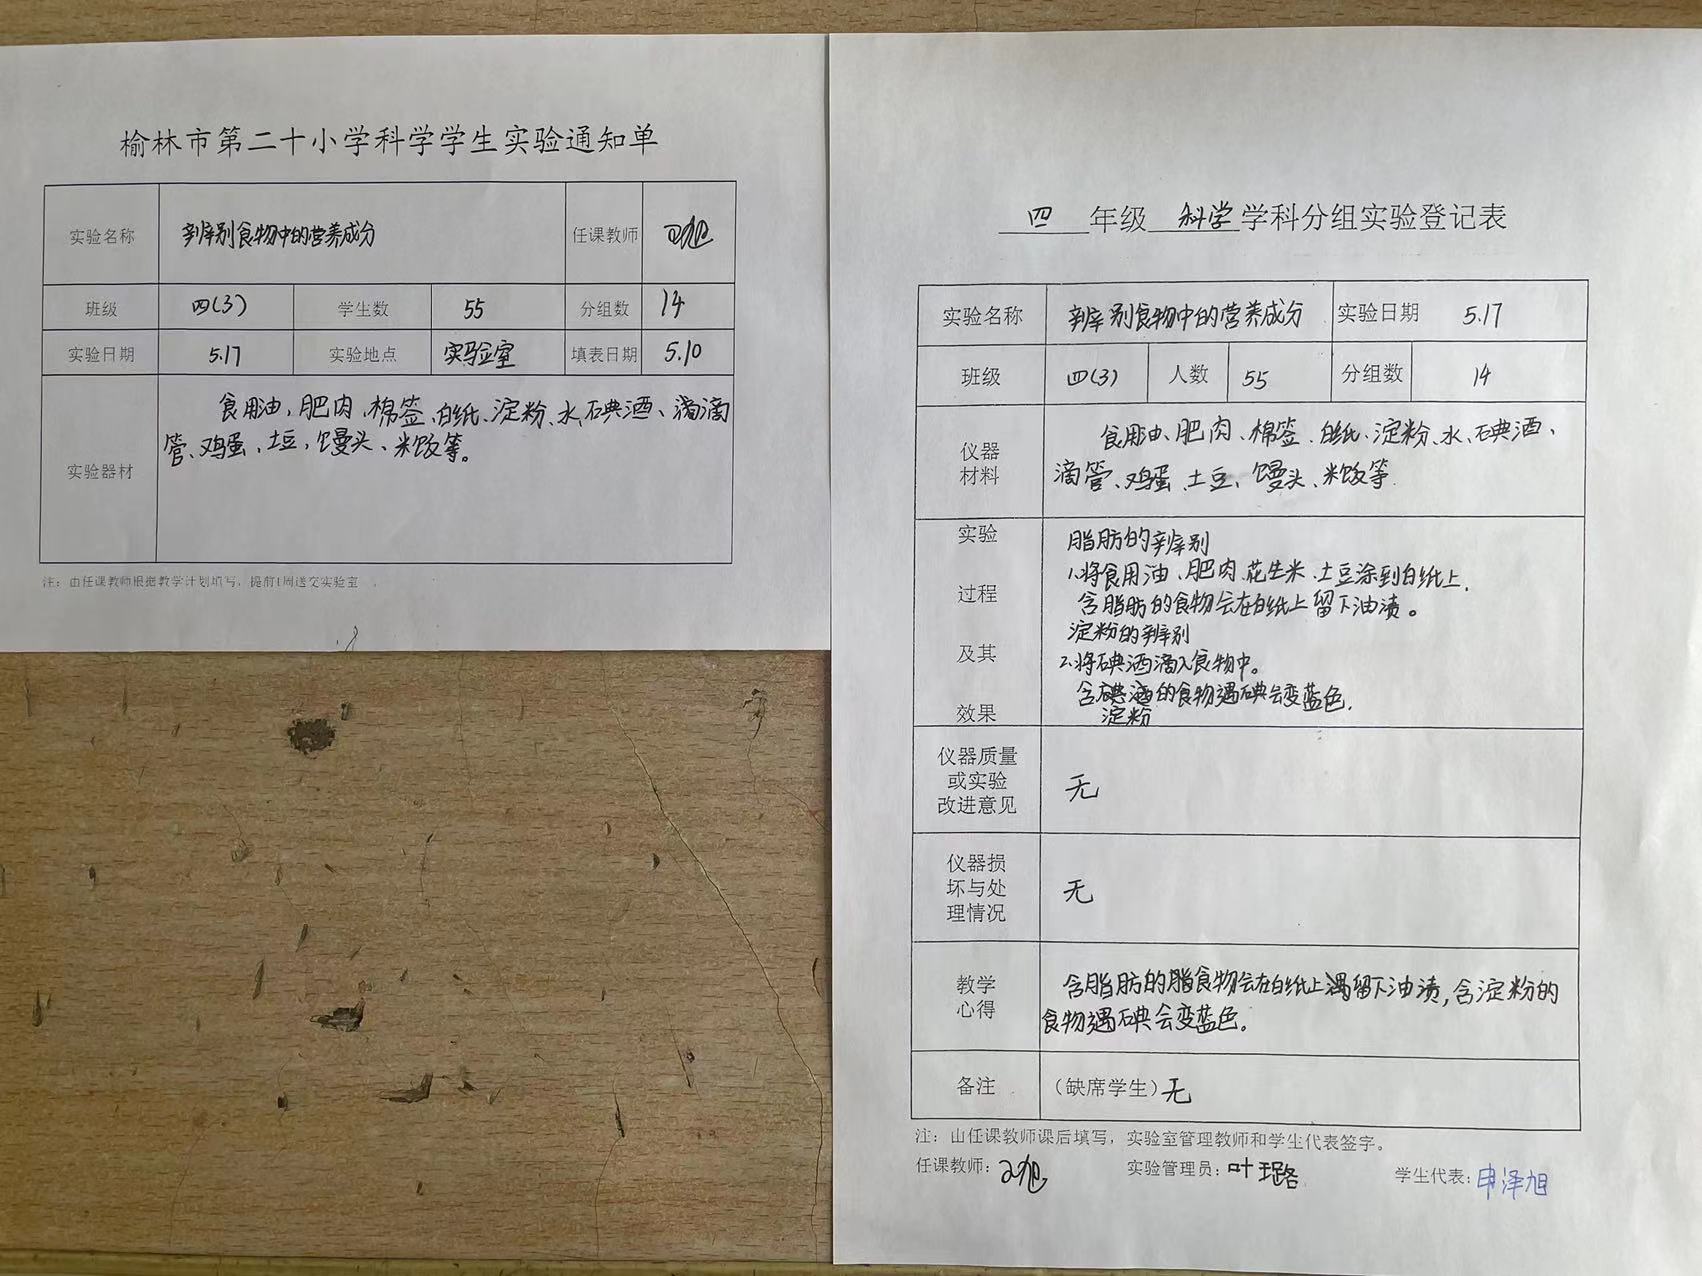 榆林市第二十小学科学学生实验通知单
实验名称 辨别食物中的营养成分 任课教师
班级 四(3) 学生数 55 分组数 14
实验日期 5.17 实验地点 实验室 填表日期 5.10
食用油、肥肉、棉签、白纸、淀粉、水、碘酒、滴
管、鸡蛋、土豆、馒头、米饭等。
实验器材
注：由任课教师根据教学计划填写，提前1周送交实验室
四 年级 科学 学科分组实验登记表
实验名称 辨别食物中的营养成分 实验日期 5.17
班级 四(3) 人数 55 分组数 14
仪器
材料
食用油、肥肉、棉签、白纸、淀粉、水、碘酒、
滴管、鸡蛋、土豆、馒头、米饭等
实验
过程
及其
效果
脂肪的辨别
1.将食用油、肥肉、花生米、土豆涂到白纸上，
含脂肪的食物会在白纸上留下油渍。
淀粉的辨别
2.将碘酒滴入食物中。
含碘酒的食物遇碘会变蓝色.
淀粉
仪器质量
或实验
改进意见
无
仪器损
坏与处
理情况
无
教学
心得
含脂肪的脂食物会在白纸上遇留下油渍，含淀粉的
食物遇碘会变蓝色。
备注 (缺席学生) 无
注：由任课教师课后填写，实验室管理教师和学生代表签字。
任课教师： 实验管理员：叶璐 学生代表：申泽旭